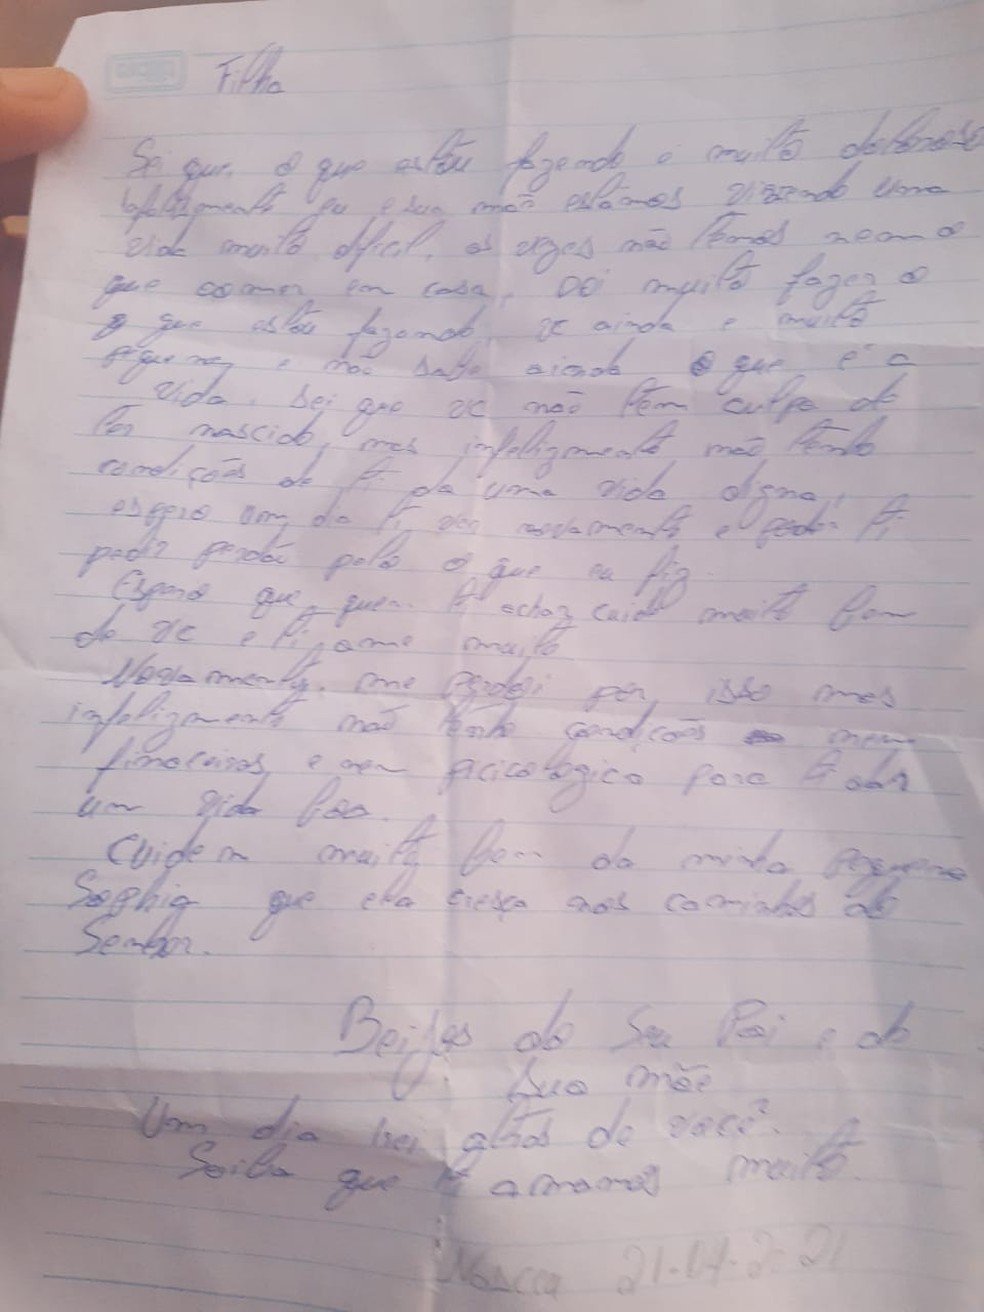 Filha
Sei que o que estou fazendo e muito doloroso
Infelizmente eu e sua mãe estamos vivendo uma
vida muito dificil, as vezes não temos nem o
que comer em casa, Doi muito fazer o
o que estou fazendo, vc ainda e muito
pequena e não sabe ainda o que é a
vida. Sei que vc não têm culpa de
ter nascido, mas infelizmente não tenho
condições de ti da uma vida digna,
espero um dia ti ver novamente e poder ti
pedir perdão pelo o que eu fiz.
Espero que quem ti achar cuide muito bem
de vc e ti ame muito
Novamente, me perdoi por isso mas
infelizmente não tenho condições nem
finaceiras e nem picicologica para ti dar
um vida boa.
Cuidem muito bem da minha pequena
Sophia que ela cresça nos caminhos do
Senhor.
Beijos do Seu Pai e da
Sua mãe
Um dia irei atras de você.
Saiba que ti amamos muito.
Nasceu 21.04.2021